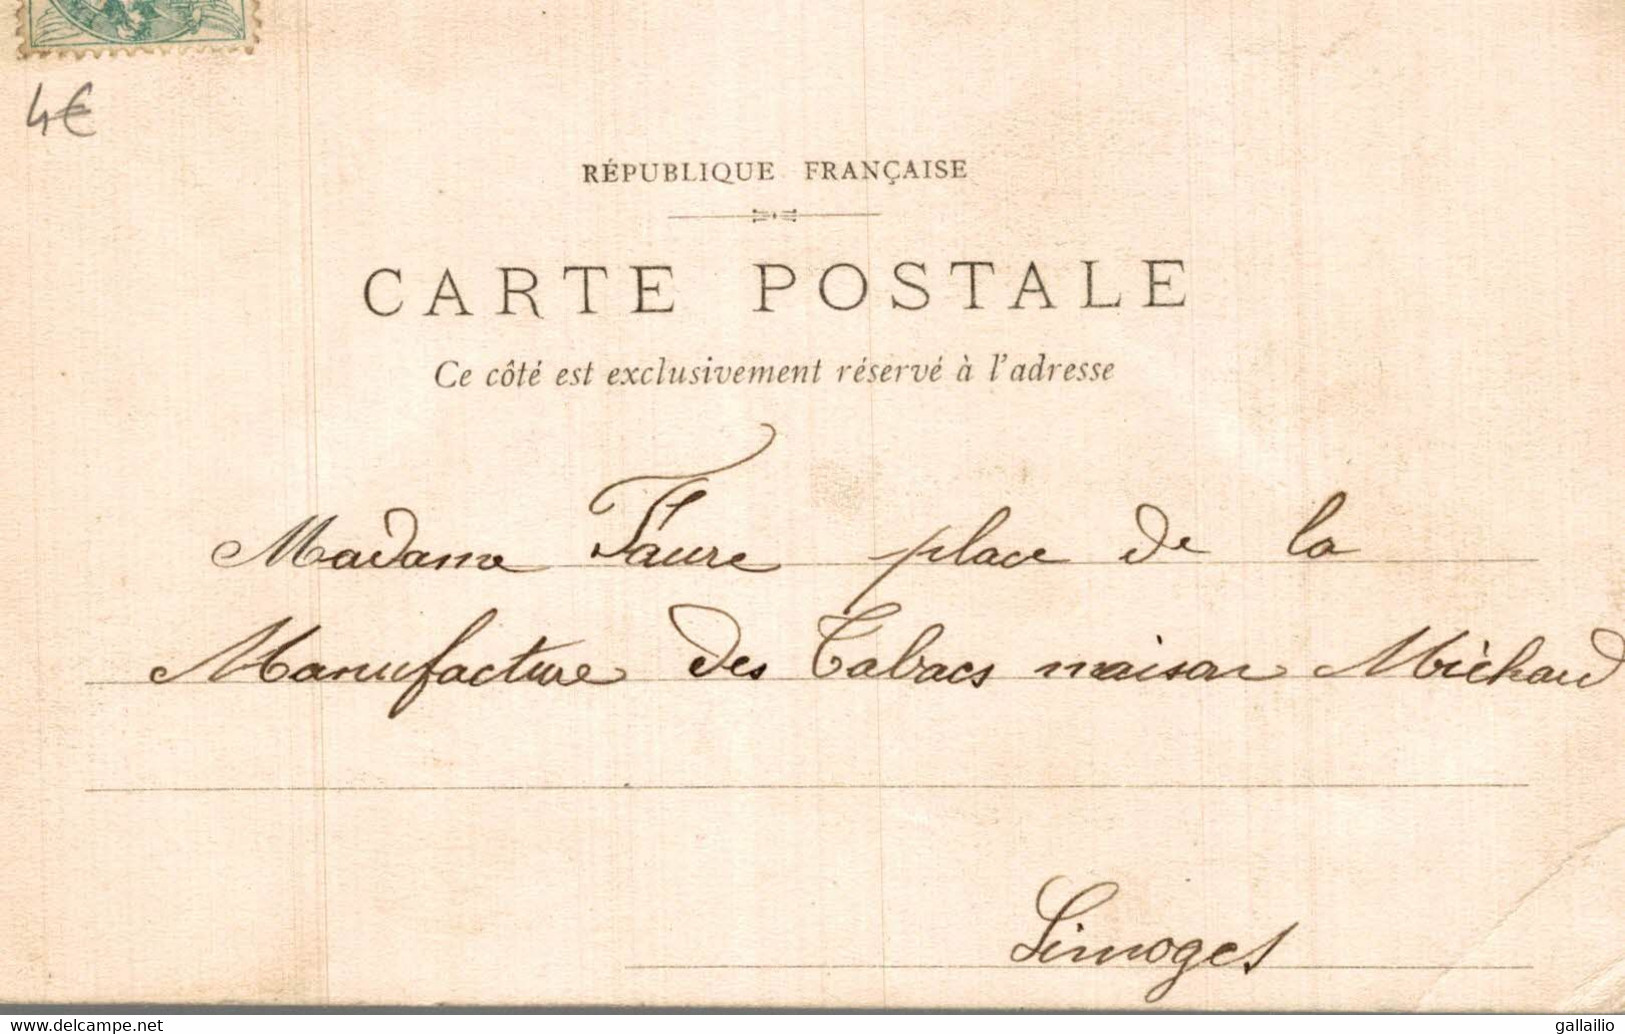 4€
RÉPUBLIQUE FRANÇAISE
CARTE POSTALE
Ce côté est exclusivement réservé à l'adresse
Madame Faure place de la
Manufacture des Tabacs maison Michaud
Limoges
www.delcampe.net
gallailio